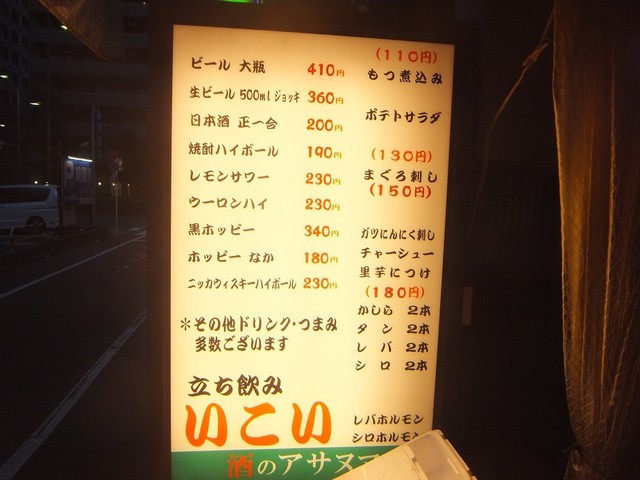 ビール 大瓶 410円
生ビール 500ml ジョッキ 360円
日本酒 正一合 200円
焼酎ハイボール 190円
レモンサワー 230円
ウーロンハイ 230円
黒ホッピー 340円
ホッピー なか 180円
ニッカウィスキーハイボール 230円
＊その他ドリンク・つまみ
多数ございます
(110円)
もつ煮込み
ポテトサラダ
(130円)
まぐろ刺し
(150円)
ガツにんにく刺し
チャーシュー
里芋につけ
(180円)
かしら 2本
タン 2本
レバ 2本
シロ 2本
レバホルモン
シロホルモン
立ち飲み
いこい
酒のアサヌマ